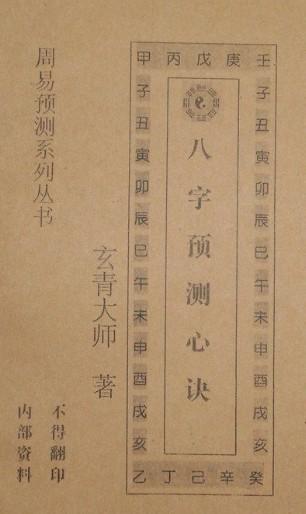 周易预测系列丛书
玄青大师 著
不得翻印
内部资料
八字预测心诀
甲 丙 戊 庚 壬
子丑寅卯辰巳午未申酉戌亥
子丑寅卯辰巳午未申酉戌亥
乙 丁 己 辛 癸